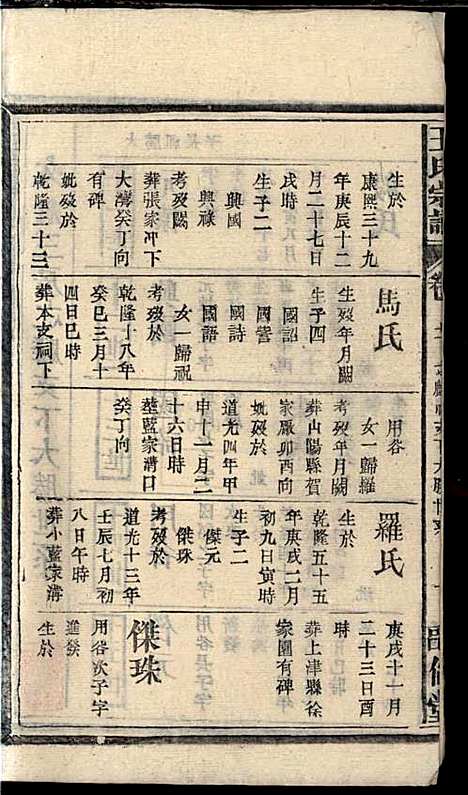 生於
康熙三十九
年庚辰十二
月二十七日
戌時
生子二
興國
興祿
考歿闕
葬張家冲下
大灣癸丁向
有碑
妣歿於
乾隆三十三
馬氏
生歿年月闕
生子四
國詔
國誥
國詩
國語
女一歸祝
考歿於
乾隆十八年
癸巳三月十
四日巳時
葬本支祠下
用咨
女一歸羅
考歿年月闕
葬山陽縣賀
家嚴卯酉向
妣歿於
道光四年甲
申十一月二
十六日時
塟藍家溝口
癸丁向
羅氏
生於
乾隆五十五
年庚戌二月
初九日寅時
生子二
傑元
傑珠
考歿於
道光十三年
壬辰七月初
八日午時
葬小藍家溝
庚戌十一月
二十三日酉
時
葬上津縣徐
家園有碑
傑珠
用咨次子字
進癸
生於
王氏宗譜